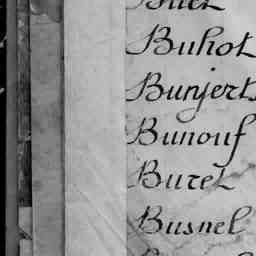 Buhot
Bunjert
Bunouf
Buret
Busnel